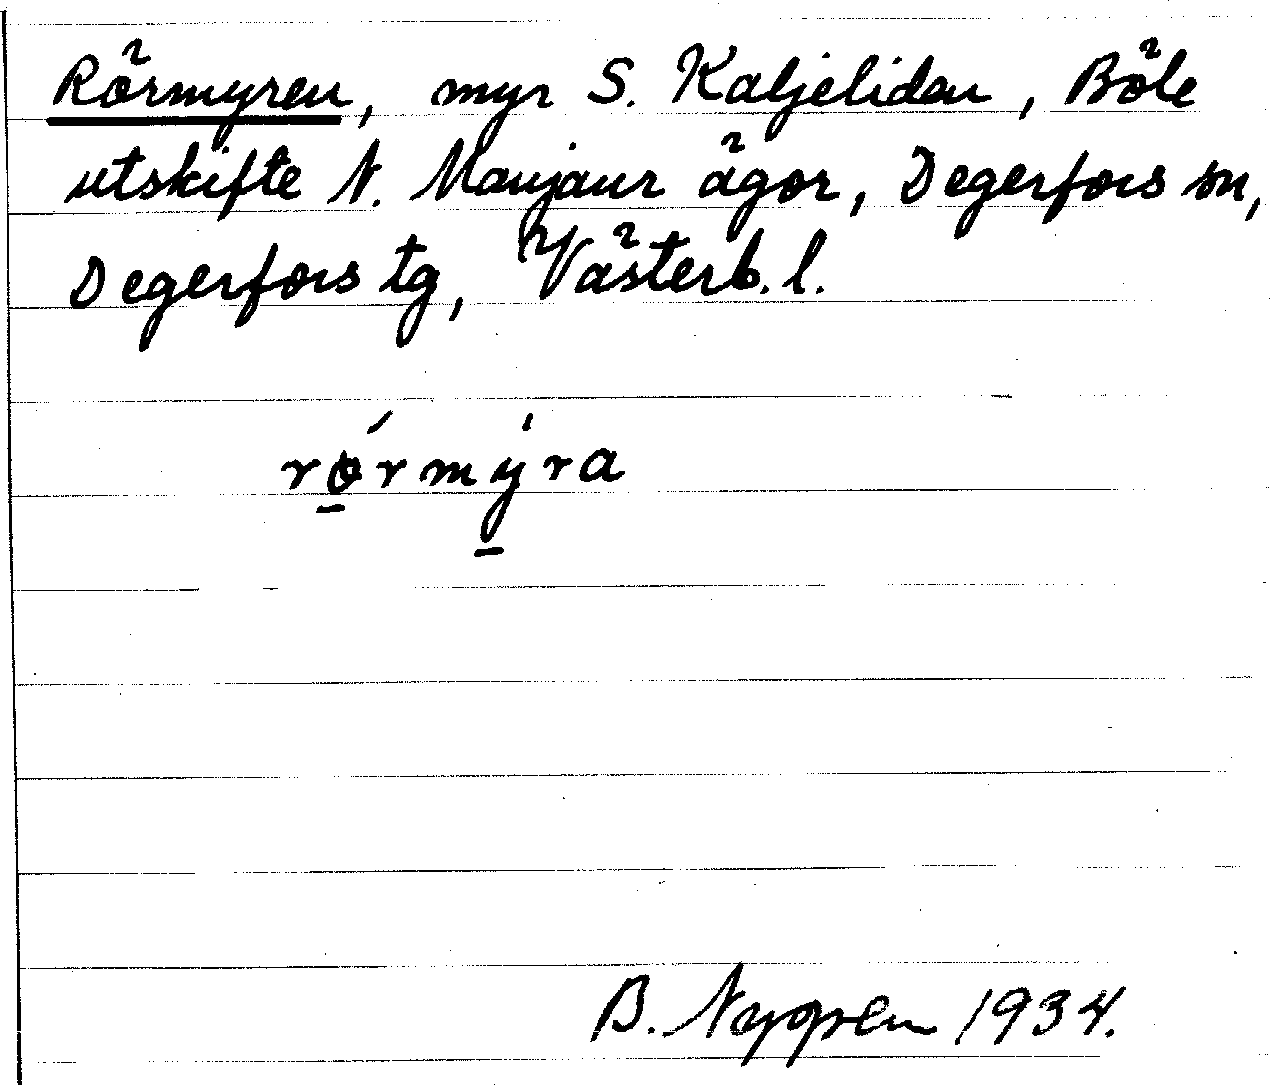 Rörmyren, myr S. Kaljelidan, Böle
utskifte N. Manjaur ägor, Degerfors sn,
Degerfors tg, Västerb. l.
rǿ̱rmý̱ra
B. Nygren 1934.